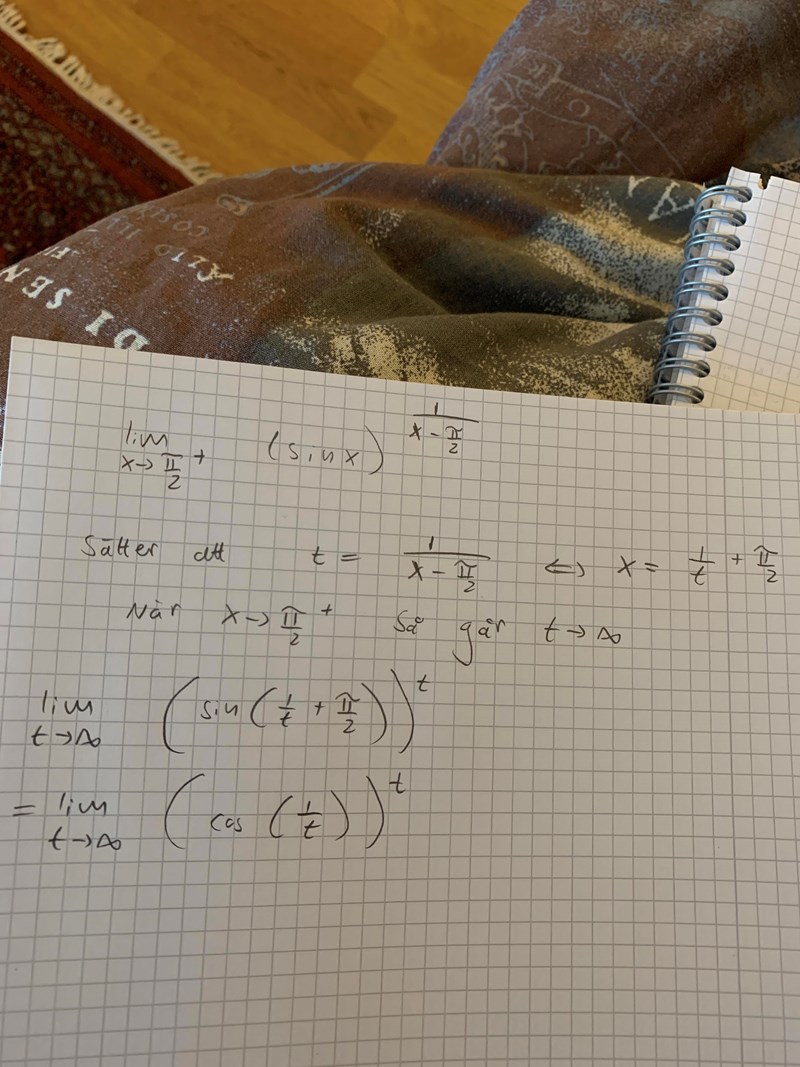 DI SEN
lim x→π/2⁺ (sin x)^(1/(x − π/2))
Sätter att t = 1/(x − π/2) ⇔ x = 1/t + π/2
När x→π/2⁺ så går t→∞
lim t→∞ (sin(1/t + π/2))^t
= lim t→∞ (cos(1/t))^t